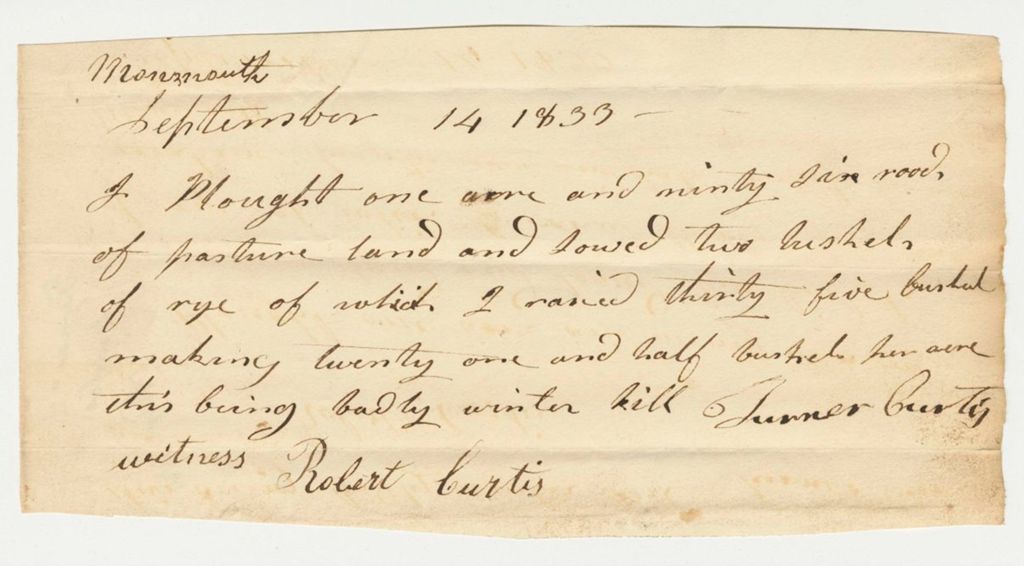 Monmouth
September 14 1833 -
I Plought one acre and ninty six rods
of pasture land and sowed two bushels
of rye of which I raised thirty five bushel
making twenty one and half bushels per acre
this being badly winter kill Turner Curtis
witness Robert Curtis